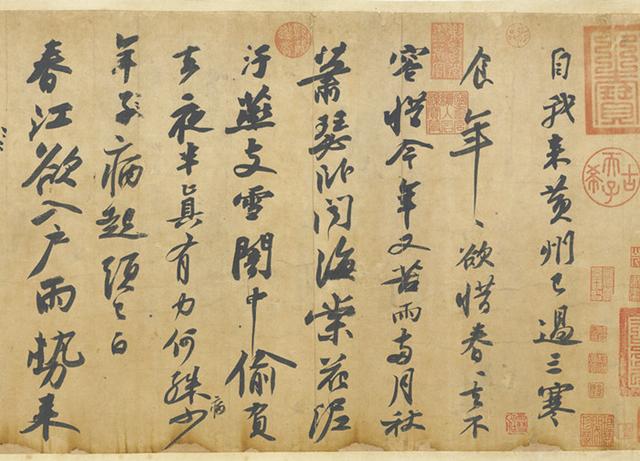 自我來黃州已過三寒
食年、欲惜春、去不
容惜今年又苦雨兩月秋
蕭瑟卧聞海棠花泥
汙燕支雪闇中偷負
去夜半真有力何殊少
病
年子病起頭已白
春江欲入户雨勢来
古希天子